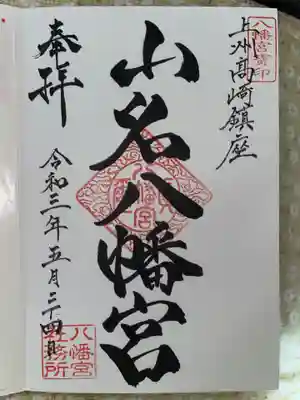 八幡宮寶印
上州高崎鎮座
山名八幡宮
奉拝
令和三年五月二十四日
八幡宮
社務所